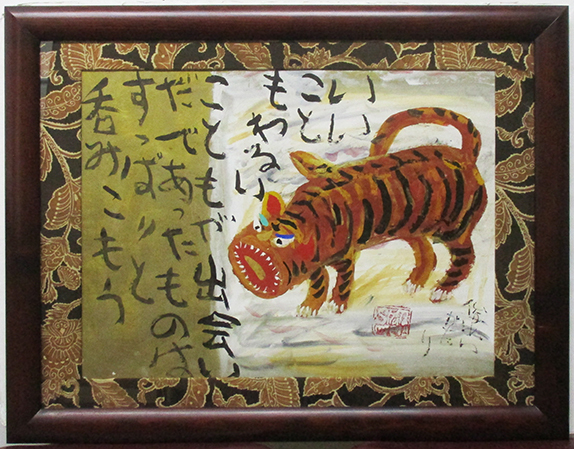 いい
こと
もわるい
こともが出会い
だであったものは
すっぱりと
呑みこもう